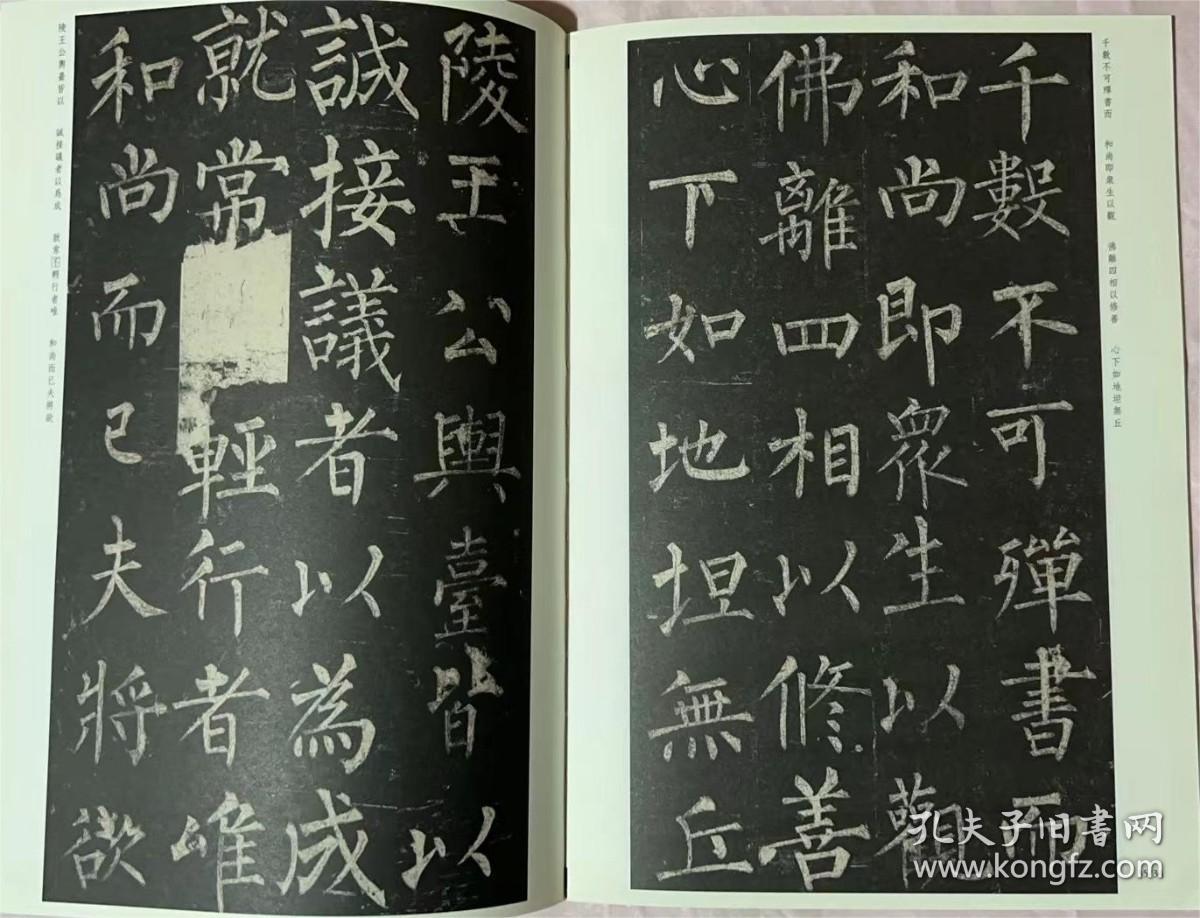 千數不可殫書而
和尚即眾生以觀
佛離四相以修善
心下如地坦無丘
千數不可殫書而 和尚即眾生以觀 佛離四相以修善 心下如地坦無丘
陵王公輿臺皆以
誠接議者以為成
就常輕行者唯
和尚而已夫將欲
陵王公輿臺皆以 誠接議者以為成 就常不輕行者唯 和尚而已夫將欲
孔夫子旧書网
www.kongfz.com